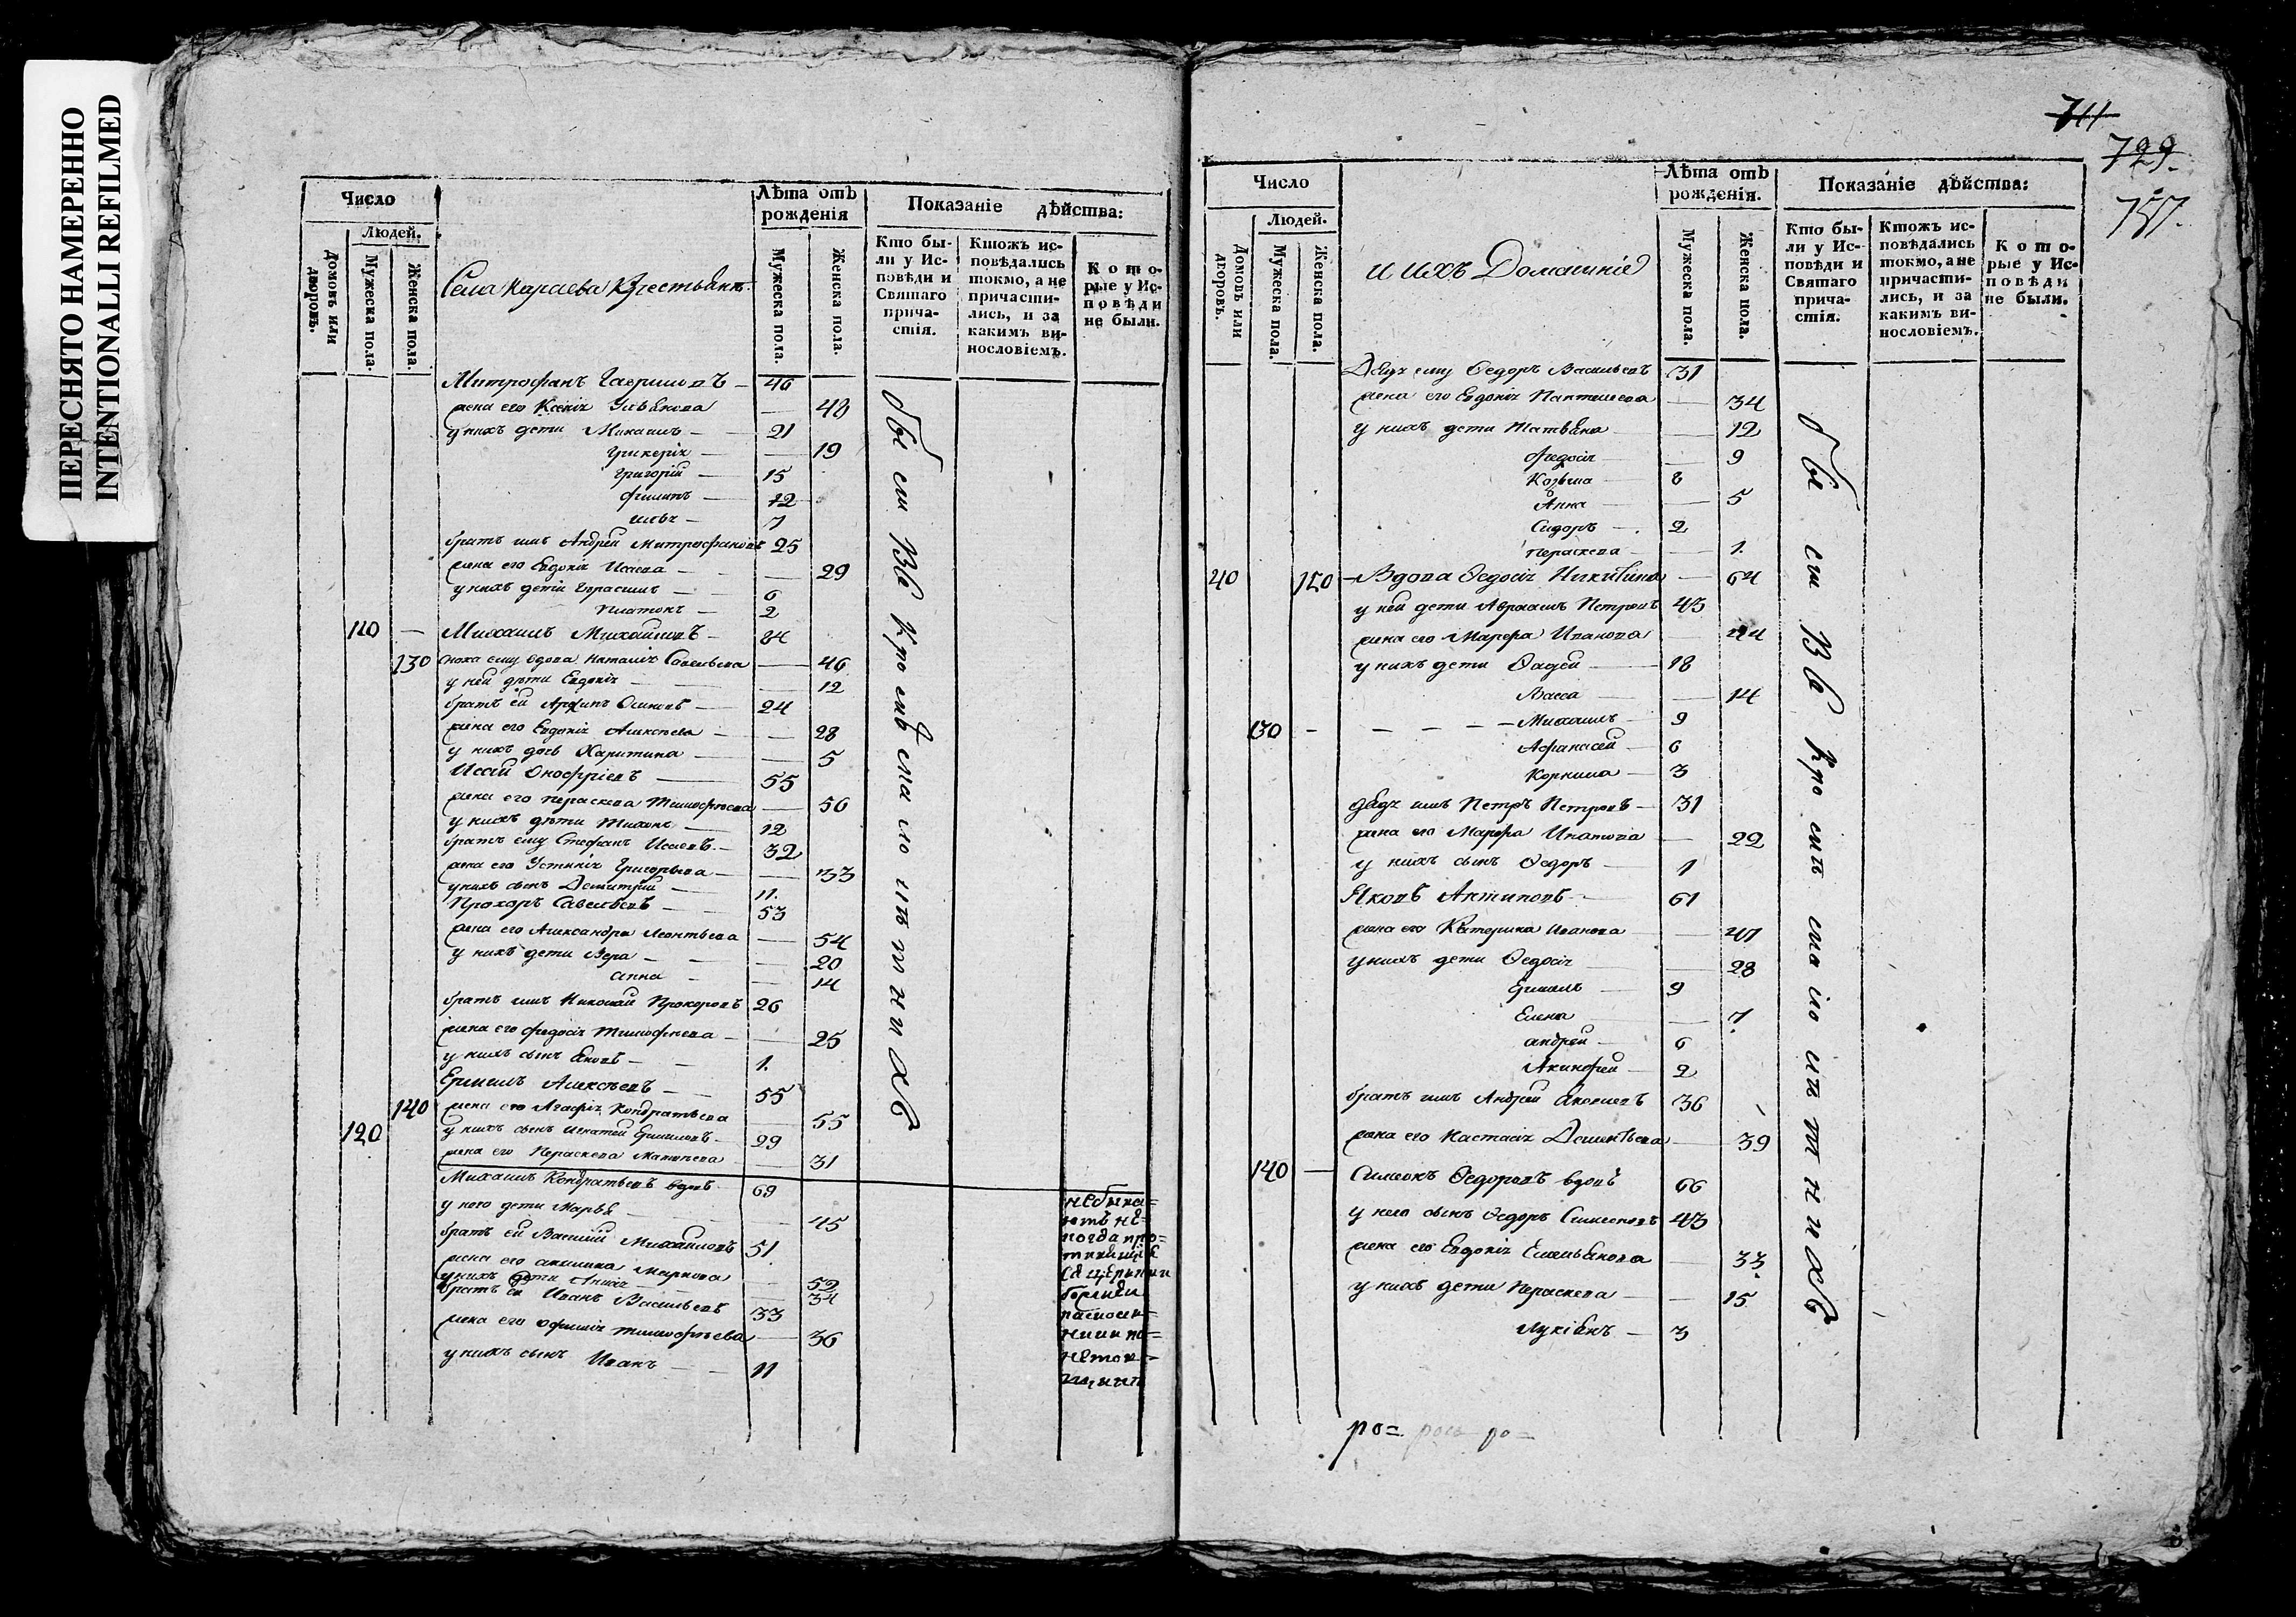 ПЕРЕСНЯТО НАМЕРЕННО
INTENTIONALLI REFILMED
Число
Людей.
Домовъ или дворовъ.
Мужеска пола.
Женска пола.
Села Караева Крестьянъ
Лѣта отъ рожденія
Мужеска пола.
Женска пола.
Показаніе дѣйства:
Кто бы-
ли у Ис-
повѣди и
Святаго
прича-
стія.
Ктожъ ис-
повѣдались
токмо, а не
причасти-
лись, и за
какимъ ви-
нословіемъ.
Кото-
рые у Ис-
повѣди
не были.
Митрофанъ Гавриловъ 46
жена его Ксенія 48
у нихъ дети Михаилъ 21
Гликерія 19
Григорій 15
Филипъ 12
Илья 7
братъ имъ Андрей Митрофановъ 25
жена его Евдокія Исаева 29
у нихъ дети Герасимъ 6
Платонъ 2
110 — Михаилъ Михайловъ 84
130 сноха ему вдова Наталія Савельева 46
у ней дѣти Евдокія 12
братъ ей Архипъ 24
жена его Евдокія Алексѣева 28
у нихъ дочь Харитина 5
Исай Онофріевъ 55
жена его Пераскева Тимофѣева 56
у нихъ дѣти Тихонъ 12
братъ ему Стефанъ Исаевъ 32
жена его Устинія Григорьева 33
у нихъ сынъ Дмитрій 11.
Прохоръ Савельевъ 53
жена его Александра Леонтьева 54
у нихъ дети Вера 20
Анна 14
братъ имъ Николай Прохоровъ 26
жена его Федосія Тимофѣева 25
у нихъ сынъ Яковъ 1.
Ермилъ Алексѣевъ 55
140 жена его Агафія Кондратьева 55
120 у нихъ сынъ Игнатей Ермиловъ 29
жена его Пераскева 31
Михаилъ Кондратьевъ вдовъ 69
у него дети Марья 45
братъ ей Василій Михайловъ 51
жена его Акилина Маркова 52
у нихъ дети 34
братъ ей Иванъ Васильевъ 33
жена его Офимія Тимофѣева 36
у нихъ сынъ Иванъ 11
711
729.
757.
Число
Людей.
Домовъ или дворовъ.
Мужеска пола.
Женска пола.
и ихъ Домашніе
Лѣта отъ рожденія.
Мужеска пола.
Женска пола.
Показаніе дѣйства:
Кто бы-
ли у Ис-
повѣди и
Святаго
прича-
стія.
Ктожъ ис-
повѣдались
токмо, а не
причасти-
лись, и за
какимъ ви-
нословіемъ.
Кото-
рые у Ис-
повѣди
не были.
Дядя ему Ѳедоръ Васильевъ 31
жена его Евдокія Пантелеева 34
у нихъ дети Татьяна 12
Федосія 9
Козьма 8
Анна 5
Сидоръ 2
Пераскева 1.
40 150 Вдова Ѳедосія Никитина 64
у ней дети Авраамъ Петровъ 43
жена его Марфа Иванова 44
у нихъ дети Фадей 18
Васса 14
130 Михаилъ 9
Афанасей 6
Корнила 3
дядя имъ Петръ Петровъ 31
жена его Марфа 22
у нихъ сынъ Ѳедоръ 1
Яковъ Антиповъ 61
жена его Катерина Иванова 47
у нихъ дети Ѳедосія 28
Ермилъ 9
Елена 7
Андрей 6
Акинфей 2
братъ имъ Андрей Яковлевъ 36
жена его Настасія 39
140 — Симеонъ Ѳедоровъ вдовъ 66
у него сынъ Ѳедоръ Симеоновъ 43
жена его Евдокія Емельянова 33
у нихъ дети Пераскева 15
Лукіянъ 3
ро= ро=